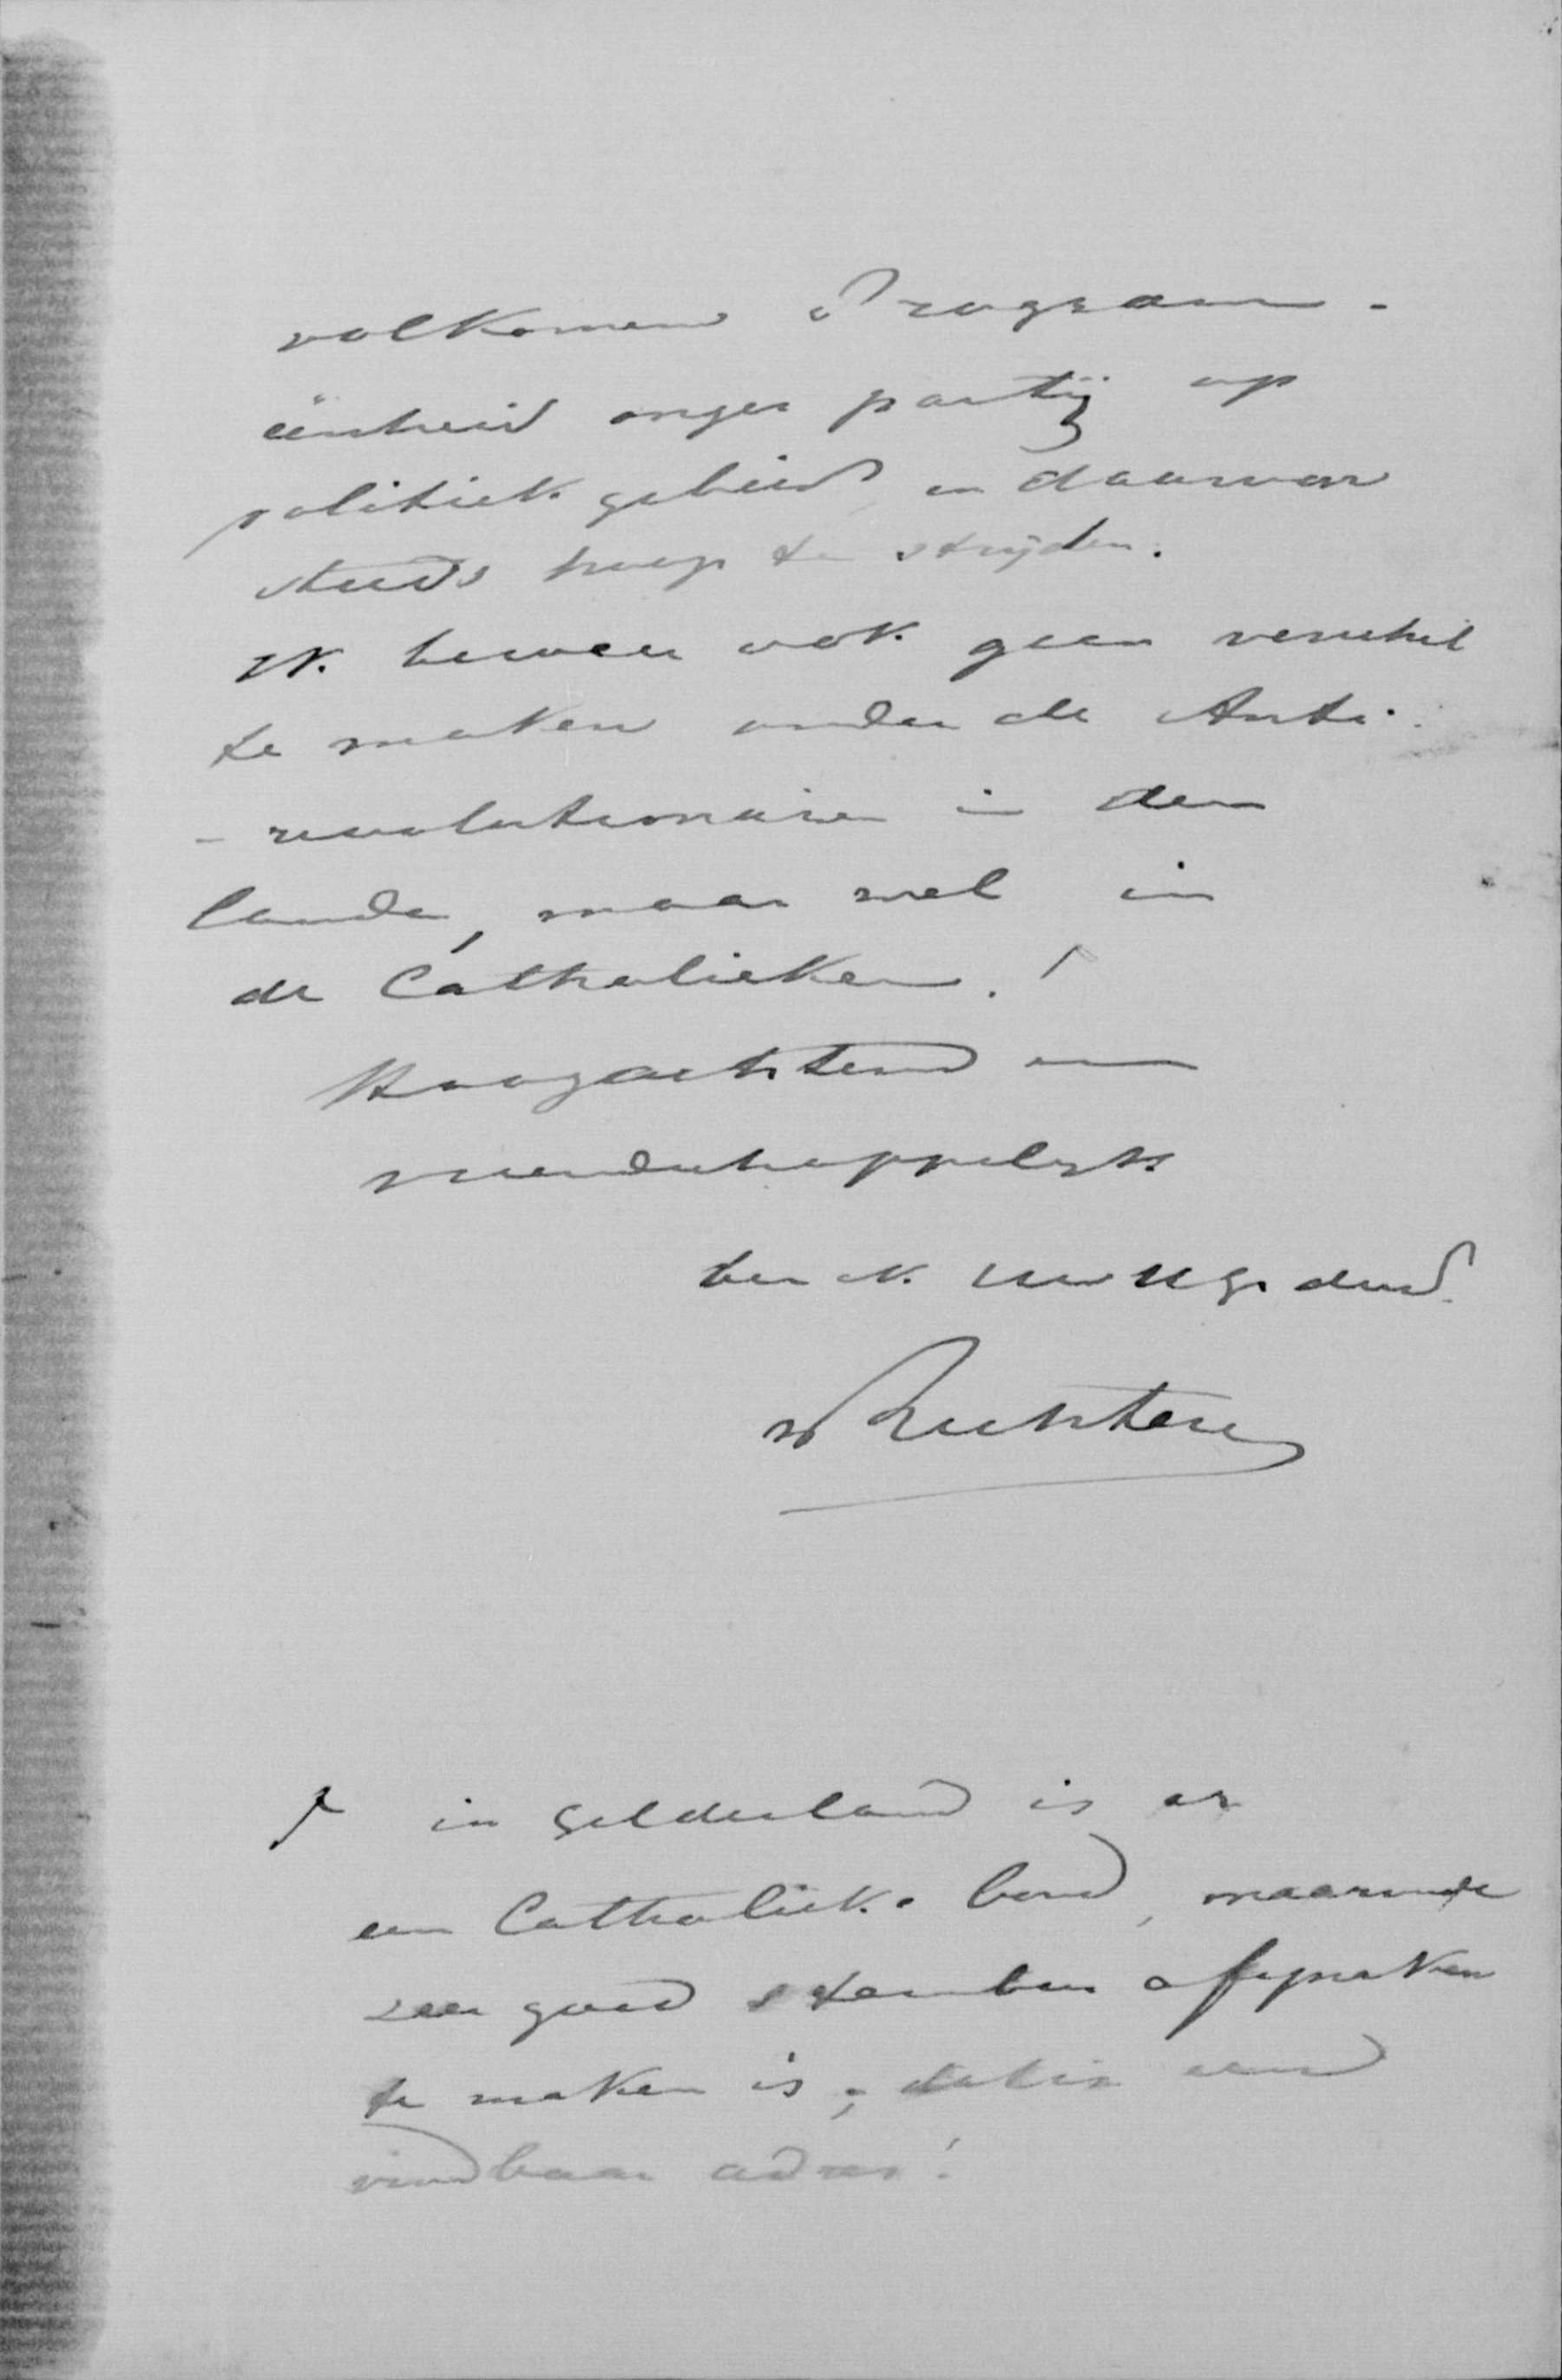 volkomen Program-
éénheid onzer partij op
politiek gebied en daarvoor
steeds hoop te strijden.
Ik beweer ook geen verschil
te maken onder de Anti-
-revolutionairen in den
lande, maar wel in
de Catholieken. !
Hoogachtend en
vriendschappelijk
ben ik uw dnd.
v Rechteren
in Gelderland is er
een Catholieke bond, waarmede
zeer goed stembus afspraken
te maken is; dat is een
vindbaar adres!